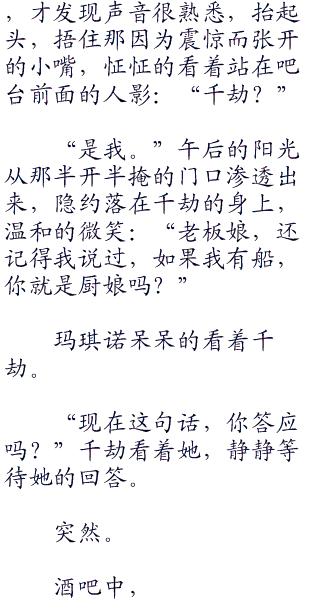 ，才发现声音很熟悉，抬起
头，捂住那因为震惊而张开
的小嘴，怔怔的看着站在吧
台前面的人影：“千劫？”
“是我。”午后的阳光
从那半开半掩的门口渗透出
来，隐约落在千劫的身上，
温和的微笑：“老板娘，还
记得我说过，如果我有船，
你就是厨娘吗？”
玛琪诺呆呆的看着千
劫。
“现在这句话，你答应
吗？”千劫看着她，静静等
待她的回答。
突然。
酒吧中，